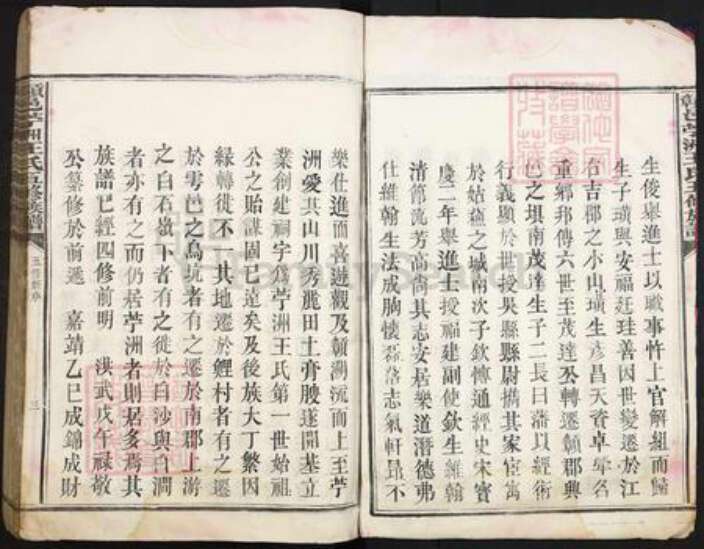 生俊舉進士以職事忤上官解組而歸
生子璜與安福廷珪善因世變遷於江
右吉郡之小山璜生彥昌天資卓犖名
重鄉邦傳六世至茂達公轉遷贛郡興
邑之埧南茂達生子二長曰藩以經術
行義顯於世授吳縣縣尉攜其家宦寓
於姑蘇之城南次子欽博通經史宋寶
慶二年舉進士授福建副使欽生維翰
清節流芳高尚其志安居樂道潛德弗
仕維翰生法成胸懷磊落志氣軒昂不
樂仕進而喜遊觀及贛瀕流而上至苧
洲愛其山川秀麗田土膏腴遂開基立
業創建祠宇爲苧洲王氏第一世始祖
公之貽謀固已遠矣及後族大丁繁因
緣轉徙不一其地遷於鯉村者有之遷
於雩邑之烏坑者有之遷於南郡上游
之白石嶺下者有之徙於白沙與牛澗
者亦有之而仍居苧洲者則居多焉其
族譜已經四修前明 洪武戊午祿敬
公纂修於前遞 嘉靖乙巳成錦成財
贛邑苧洲王氏五修族譜
五修新序
三
贛邑苧洲王氏五修族譜